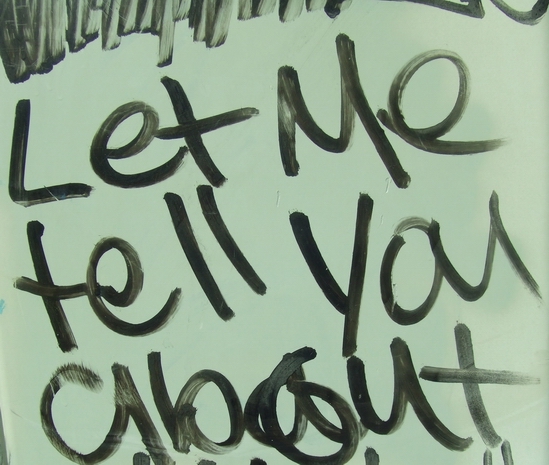 Let Me
tell you
about